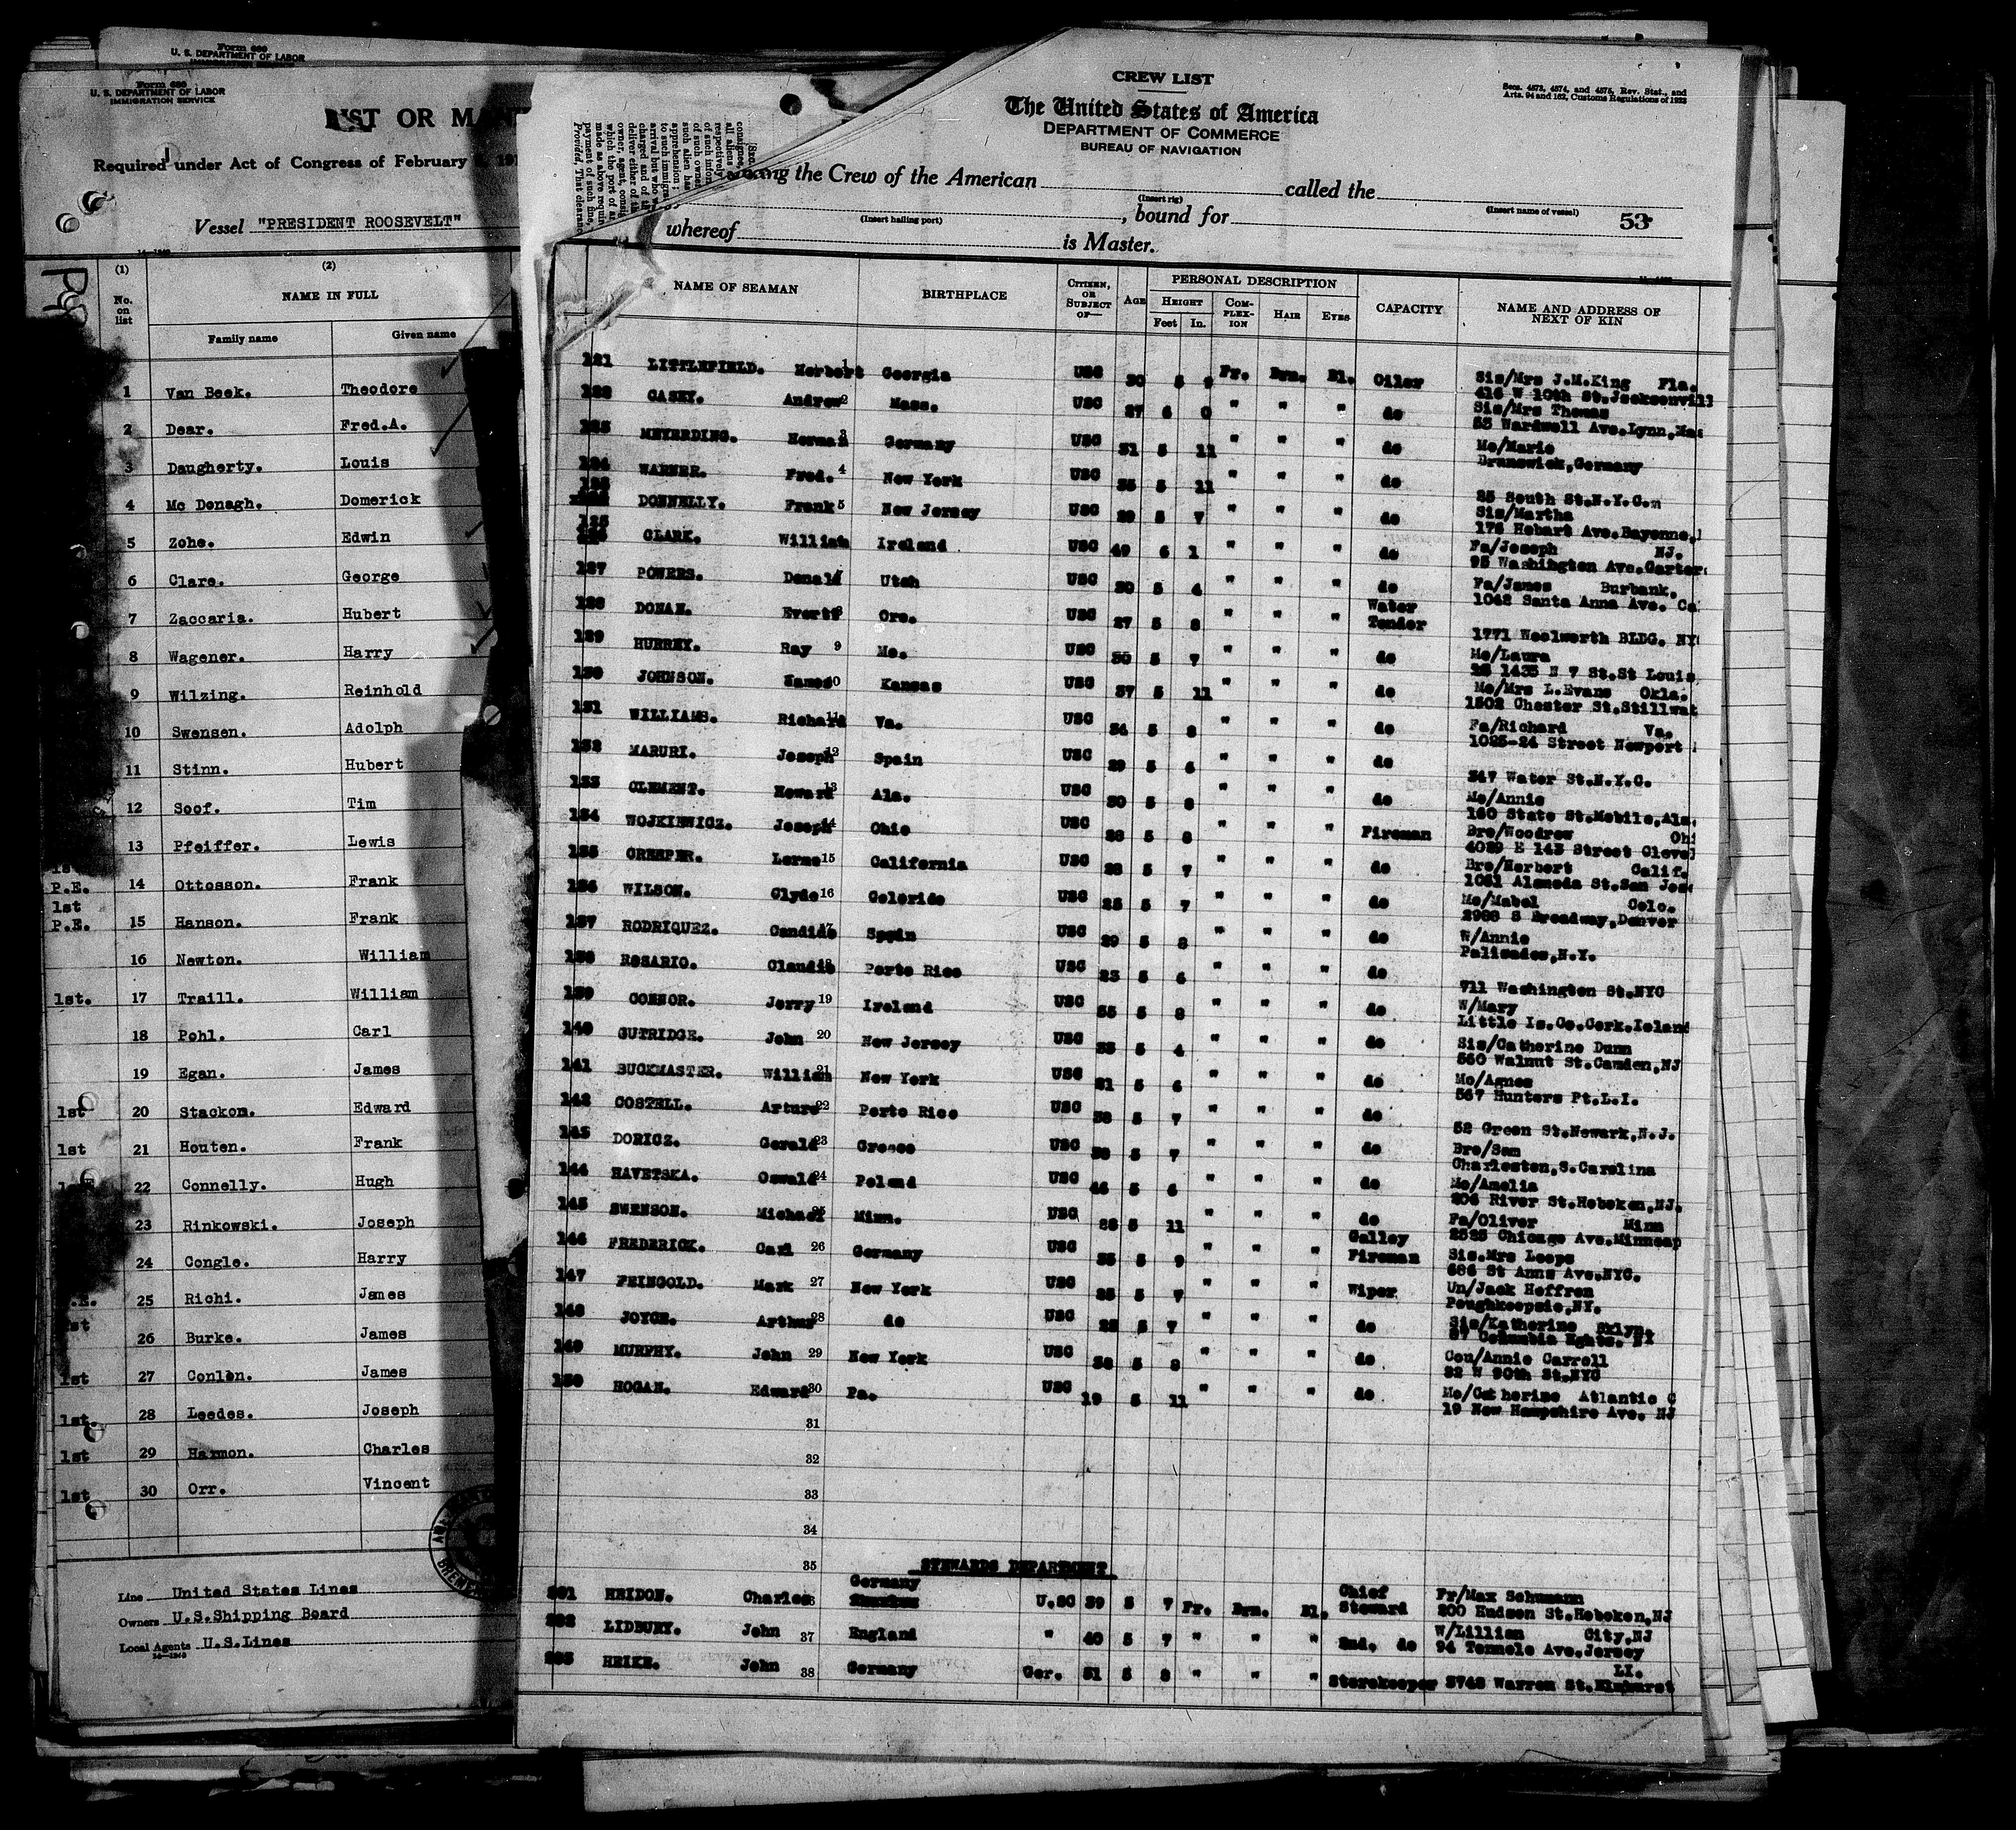 Form 680
U. S. DEPARTMENT OF LABOR
Form 680
U. S. DEPARTMENT OF LABOR
IMMIGRATION SERVICE
LIST OR
Required under Act of Congress of February
Vessel "PRESIDENT ROOSEVELT"
(1) (2)
No. on list
NAME IN FULL
Family name Given name
1 Van Beek. Theodore
2 Dear. Fred.A.
3 Daugherty. Louis
4 Mc Donagh. Domerick
5 Zohe. Edwin
6 Clare. George
7 Zaccaria. Hubert
8 Wagener. Harry
9 Wilzing. Reinhold
10 Swensen. Adolph
11 Stinn. Hubert
12 Soof. Tim
13 Pfeiffer. Lewis
P.E. 14 Ottosson. Frank
1st
P.E. 15 Hanson. Frank
16 Newton. William
1st. 17 Traill. William
18 Pohl. Carl
19 Egan. James
1st 20 Stackon. Edward
1st 21 Houten. Frank
22 Connelly. Hugh
23 Rinkowski. Joseph
24 Congle. Harry
25 Richi. James
26 Burke. James
1st 27 Conlon. James
1st. 28 Leedes. Joseph
1st 29 Harmon. Charles
1st 30 Orr. Vincent
Line United States Lines
Owners U.S.Shipping Board
Local Agents U.S.Lines
CREW LIST
The United States of America
DEPARTMENT OF COMMERCE
BUREAU OF NAVIGATION
Secs. 4573, 4574, and 4575, Rev. Stat., and
Arts. 94 and 162, Customs Regulations of 1923
the Crew of the American called the
(Insert rig) (Insert name of vessel)
, bound for 53
(Insert hailing port)
whereof is Master.
NAME OF SEAMAN BIRTHPLACE CITIZEN, OR SUBJECT OF— AGE PERSONAL DESCRIPTION CAPACITY NAME AND ADDRESS OF NEXT OF KIN
HEIGHT COMPLEXION HAIR EYES
Feet In.
121 LITTLEFIELD. Herbert 1 Georgia USC 30 5 9 Fr. Brn. Bl. Oiler Sis/Mrs J.M.King Fla.
416 W 10th St.Jacksonvill
122 CASEY. Andrew 2 Mass. USC 27 6 0 " " " do Sis/Mrs Thomas
53 Wardwell Ave.Lynn,Mas
123 MEYERDING. Herman 3 Germany USC 31 5 11 " " " do Mo/Marie
Brunswick,Germany
124 WARNER. Fred. 4 New York USC 35 5 11 " " " do
25 South St.N.Y.C.
DONNELLY. Frank 5 New Jersey USC 29 5 7 " " " do Sis/Martha
176 Hobart Ave.Bayonne,
CLARK. William Ireland USC 49 6 1 " " " do Fa/Joseph NJ.
95 Washington Ave.Carter
127 POWERS. Donald Utah USC 30 5 4 " " " do Fa/James Burbank.
1042 Santa Anna Ave. Ca
128 DONAN. Evert 8 Ore. USC 27 5 8 " " " Water Tender
1771 Woolworth BLDG. NY
129 HURREY. Ray 9 Mo. USC 30 5 7 " " " do Mo/Laura
1435 N 7 St.St Louis
130 JOHNSON. James 10 Kansas USC 37 5 11 " " " do Mo/Mrs L.Evans Okla.
1502 Chester St.Stillwat
131 WILLIAMS. Richard 11 Va. USC 34 5 8 " " " do Fa/Richard Va.
1025-24 Street Newport
132 MARURI. Joseph 12 Spain USC 29 5 6 " " " do
347 Water St.N.Y.C.
133 CLEMENT. Howard 13 Ala. USC 30 5 8 " " " do Mo/Annie
160 State St.Mobile,Ala.
134 WOJKIEWICZ. Joseph 14 Ohio USC 28 5 8 " " " Fireman Bro/Woodrow Ohi
4029 E 143 Street Clevel
135 CREEPER. Lorne 15 California USC 28 5 7 " " " do Bro/Herbert Calif.
1081 Alameda St.San Jose
136 WILSON. Clyde 16 Colorido USC 25 5 7 " " " do Mo/Mabel Colo.
2988 S Broadway,Denver
137 RODRIQUEZ. Candido 17 Spain USC 29 5 8 " " " do W/Annie
Palisades,N.Y.
138 ROSARIO. Claudio Porto Rico USC 23 5 6 " " " do
711 Washington St.NYC
139 CONNOR. Jerry 19 Ireland USC 35 5 8 " " " do W/Mary
Little Is.Co.Cork.Ieland
140 GUTRIDGE. John 20 New Jersey USC 33 5 4 " " " do Sis/Catherine Dunn
560 Walnut St.Camden,NJ
141 BUCKMASTER. William 21 New York USC 21 5 6 " " " do Mo/Agnes
567 Hunters Pt.L.I.
142 COSTELL. Arturo 22 Porto Rico USC 38 5 7 " " " do
52 Green St.Newark,N.J.
143 DORICZ. Gerald 23 Greece USC 38 5 7 " " " do Bro/Sam
Charleston,S.Carolina
144 HAVETSKA. Oswald 24 Poland USC 44 5 6 " " " do Mo/Amelia
206 River St.Hoboken,NJ.
145 SWENSON. Michael 25 Minn. USC 28 5 11 " " " do Fa/Oliver Minn
2525 Chicago Ave.Minneap
146 FREDERICK. Carl 26 Germany USC 35 5 9 " " " Galley Fireman Sis.Mrs Loops
686 St Anns Ave.NYC.
147 FEINGOLD. Mark 27 New York USC 25 5 7 " " " Wiper Un/Jack Heffren
Poughkeepsie,NY.
148 JOYCE. Arthur 28 do USC 22 5 7 " " " do Sis/Katherine Brlyn.
57 Columbia Hghts. NY
149 MURPHY. John 29 New York USC 38 5 8 " " " do Cou/Annie Carroll
32 W 90th St.NYC
150 HOGAN. Edward 30 Pa. USC 19 5 11 " " " do Mo/Catherine Atlantic C
19 New Hampshire Ave. NJ
31
32
33
34
35 STEWARDS DEPARTMENT
201 HEIDON. Charles Germany U.SC 39 5 7 Fr. Brn. Bl. Chief Steward Fr/Max Schumann
200 Hudson St.Hoboken,NJ
202 LIDBURY. John 37 England " 40 5 7 " " " 2nd. do W/Lillian City,NJ
94 Tonnele Ave.Jersey
203 HEIKE. John 38 Germany Ger. 51 5 8 " " " Storekeeper LI.
3748 Warren St.Elmhurst